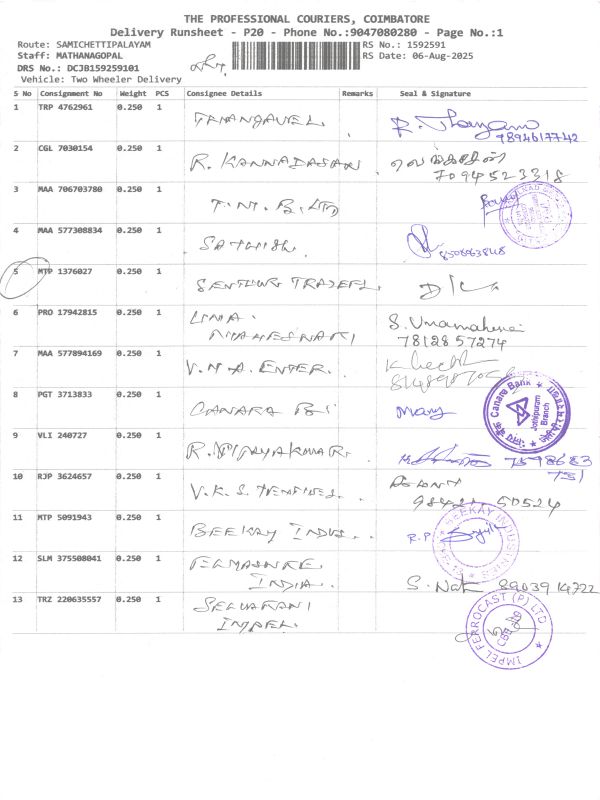 THE PROFESSIONAL COURIERS, COIMBATORE
Delivery Runsheet - P20 - Phone No.:9047080280 - Page No.:1
Route: SAMICHETTIPALAYAM
RS No.: 1592591
Staff: MATHANAGOPAL
RS Date: 06-Aug-2025
DRS No.: DCJB159259101
Vehicle: Two Wheeler Delivery
S No Consignment No Weight PCS Consignee Details Remarks Seal & Signature
1 TRP 4762961 0.250 1
7894617742
2 CGL 7030154 0.250 1 R. KANNADASAN
7094523318
3 MAA 706703780 0.250 1 T.N.T. B. LTD
4 MAA 577308834 0.250 1 SATHISH.
5 MTP 1376027 0.250 1 D/L
6 PRO 17942815 0.250 1 UMA. MAHESWARI S. Umamaheswari
7812857274
7 MAA 577894169 0.250 1 V.M.A. ENTER.
8 PGT 3713833 0.250 1 CANARA Bk. Many
Canara Bank
Jothipuram
Branch
9 VLI 240727 0.250 1 R. VIJAYAKUMAR. 7598683
751
10 RJP 3624657 0.250 1 V.K.S. TEXTILES.
98421 50524
11 MTP 5091943 0.250 1 BEEKAY INDUS. R.P.
BEEKAY INDUSTRIES
12 SLM 375508041 0.250 1 INDIA. S. Nat 8903914722
13 TRZ 220635557 0.250 1 SELVARANI
IMPEL.
IMPEL FERROCAST (P) LTD
CBE-20